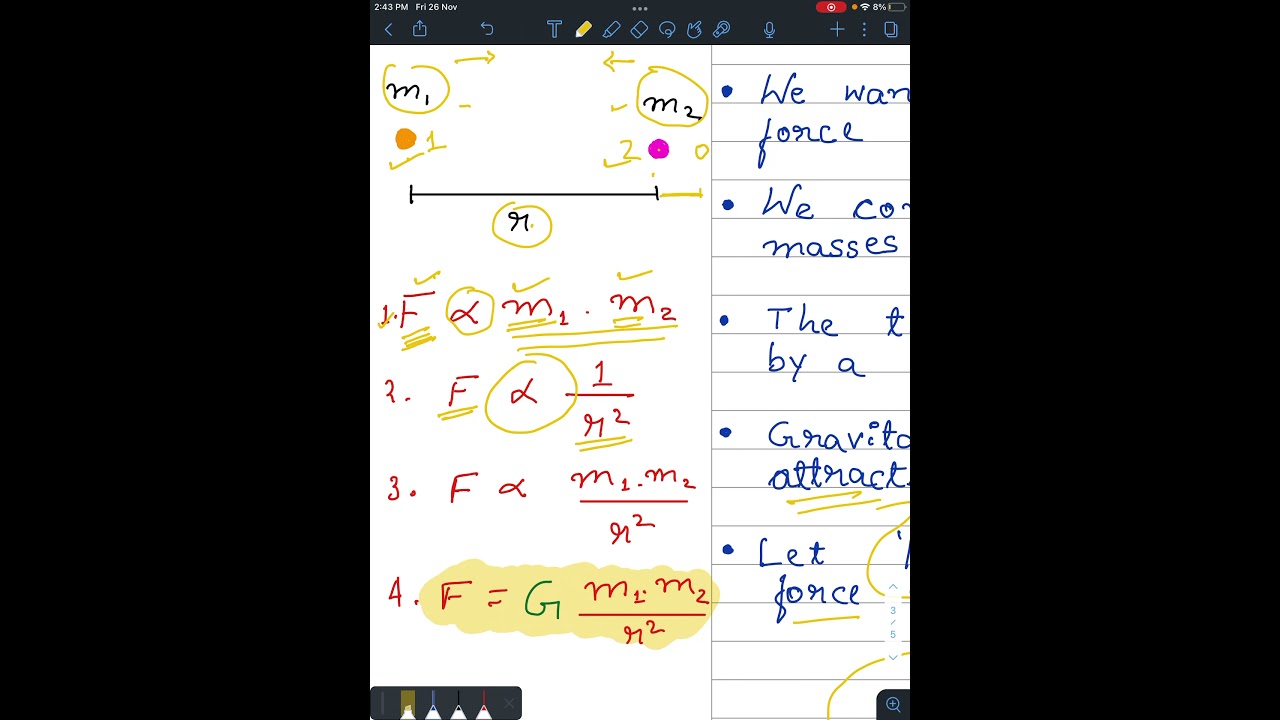 2:43 PM Fri 26 Nov
8%
T
m₁
m₂
1
2
0
r
1. F ∝ m₁ . m₂
2. F ∝ 1/r²
3. F ∝ m₁.m₂/r²
4. F = G m₁.m₂/r²
• We wan
force
• We co
masses
• The t
by a
• Gravit
attract
• Let
force
3
/
5